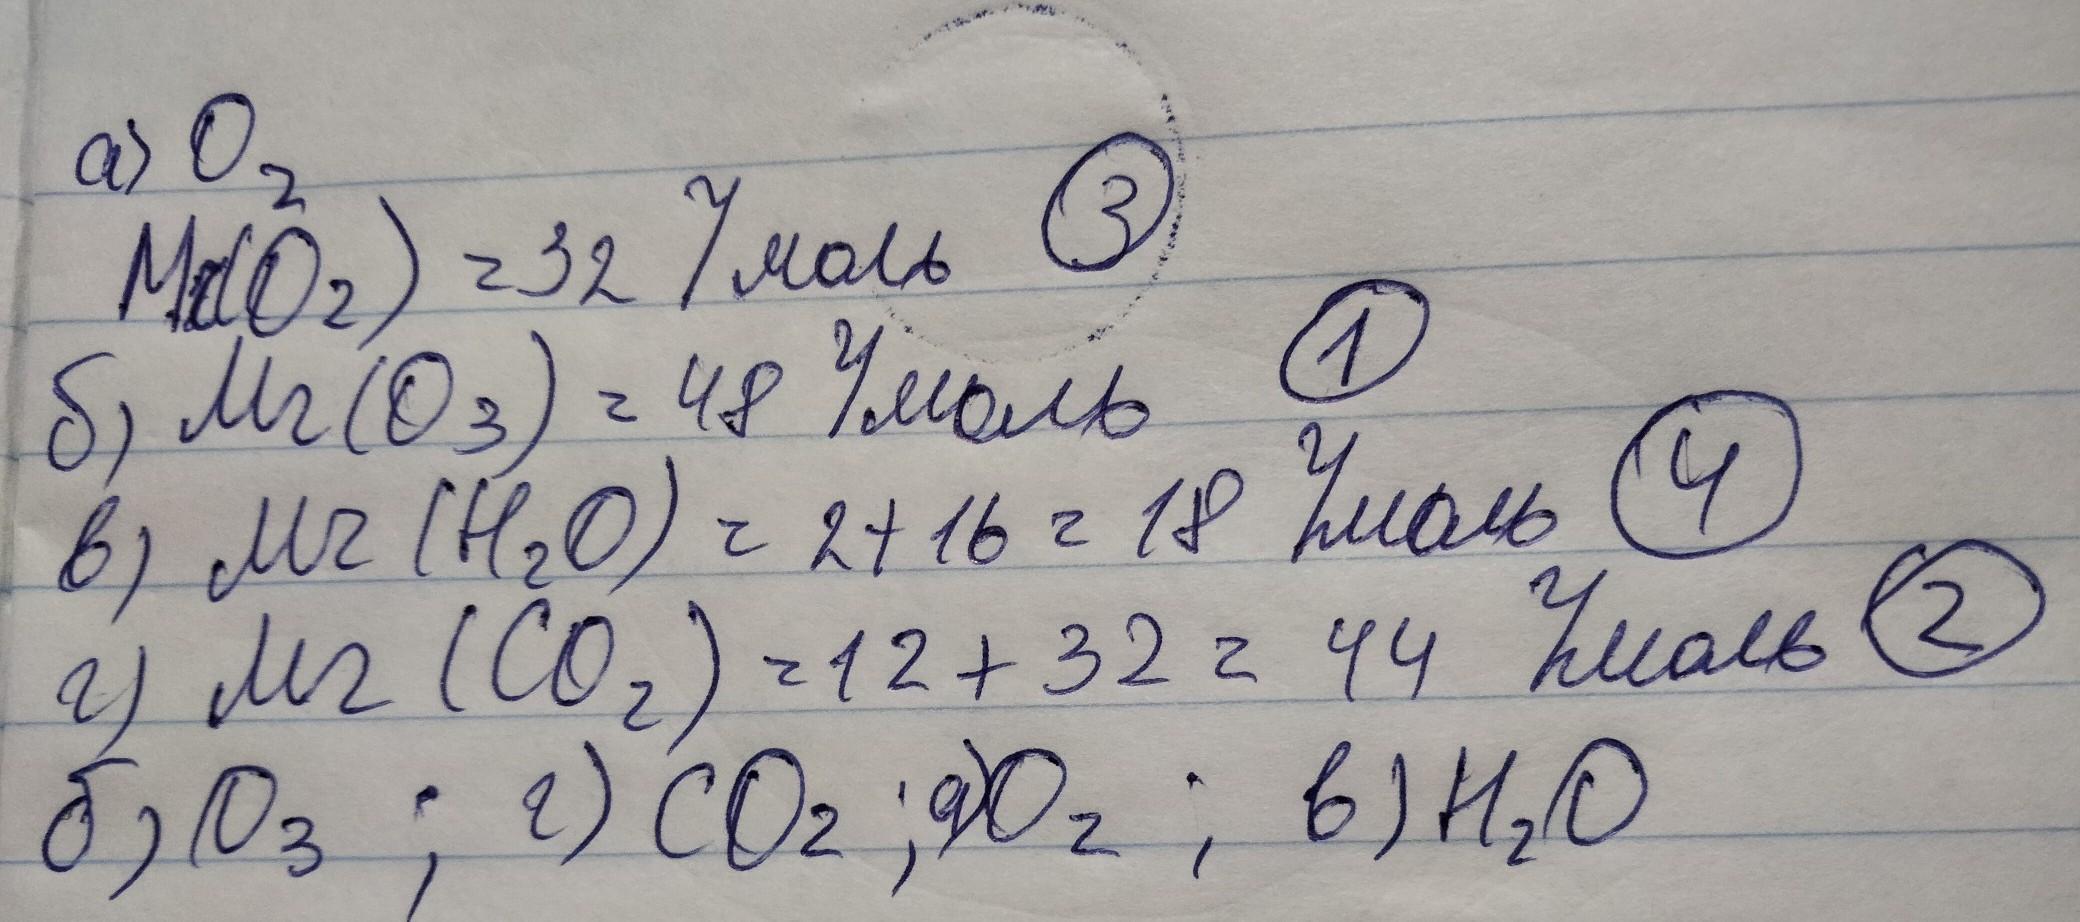 а) O₂
Mr(O₂) = 32 г/моль ③
б) Mr(O₃) = 48 г/моль ①
в) Mr(H₂O) = 2+16 = 18 г/моль ④
г) Mr(CO₂) = 12 + 32 = 44 г/моль ②
б) O₃ ; г) CO₂ ; а) O₂ ; в) H₂O